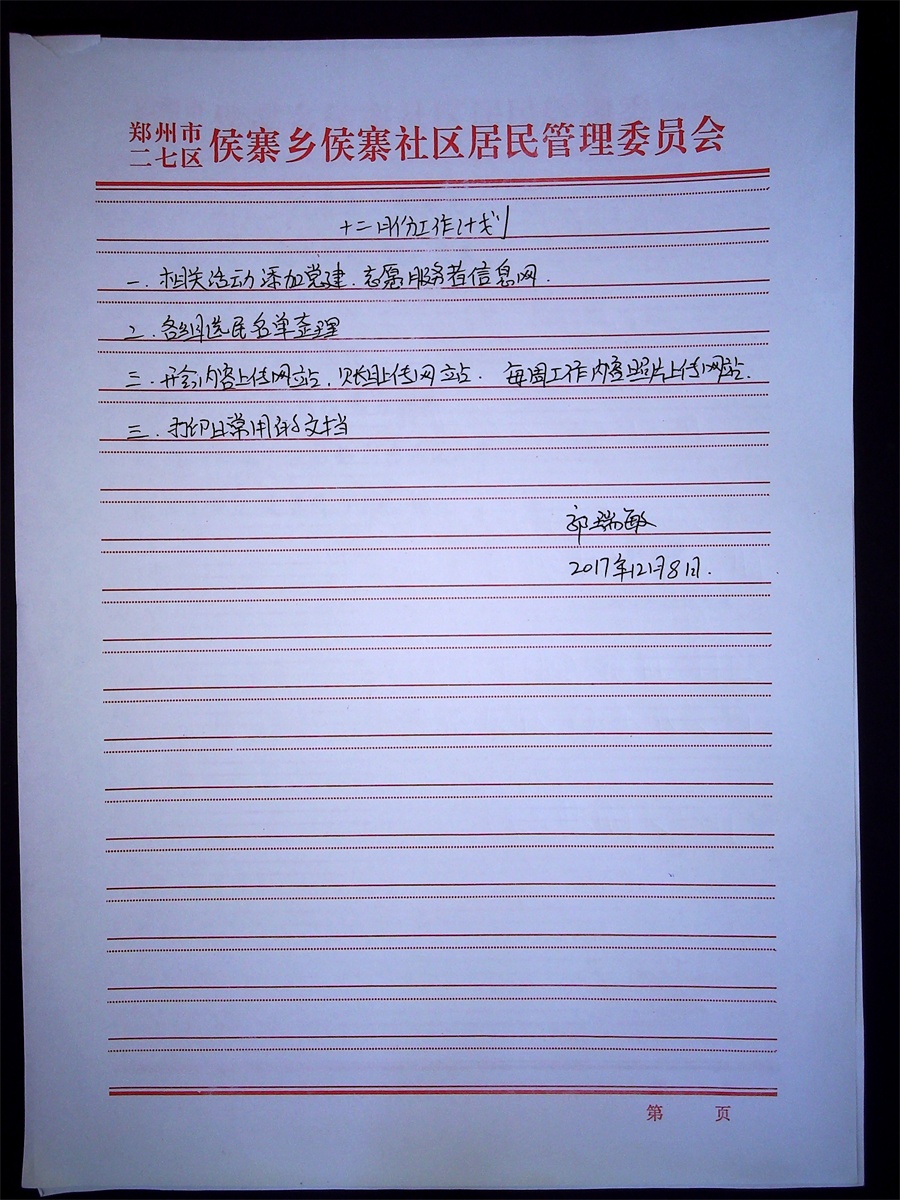 郑州市
二七区 侯寨乡侯寨社区居民管理委员会
十二月份工作计划
一.相关活动添加党建.志愿服务者信息网.
二.各组选民名单整理
三.开会内容上传网站,账组上传网站.每周工作内容照片上传网站.
三.打印日常用的文档
郭瑞敏
2017年12月8日.
第 页